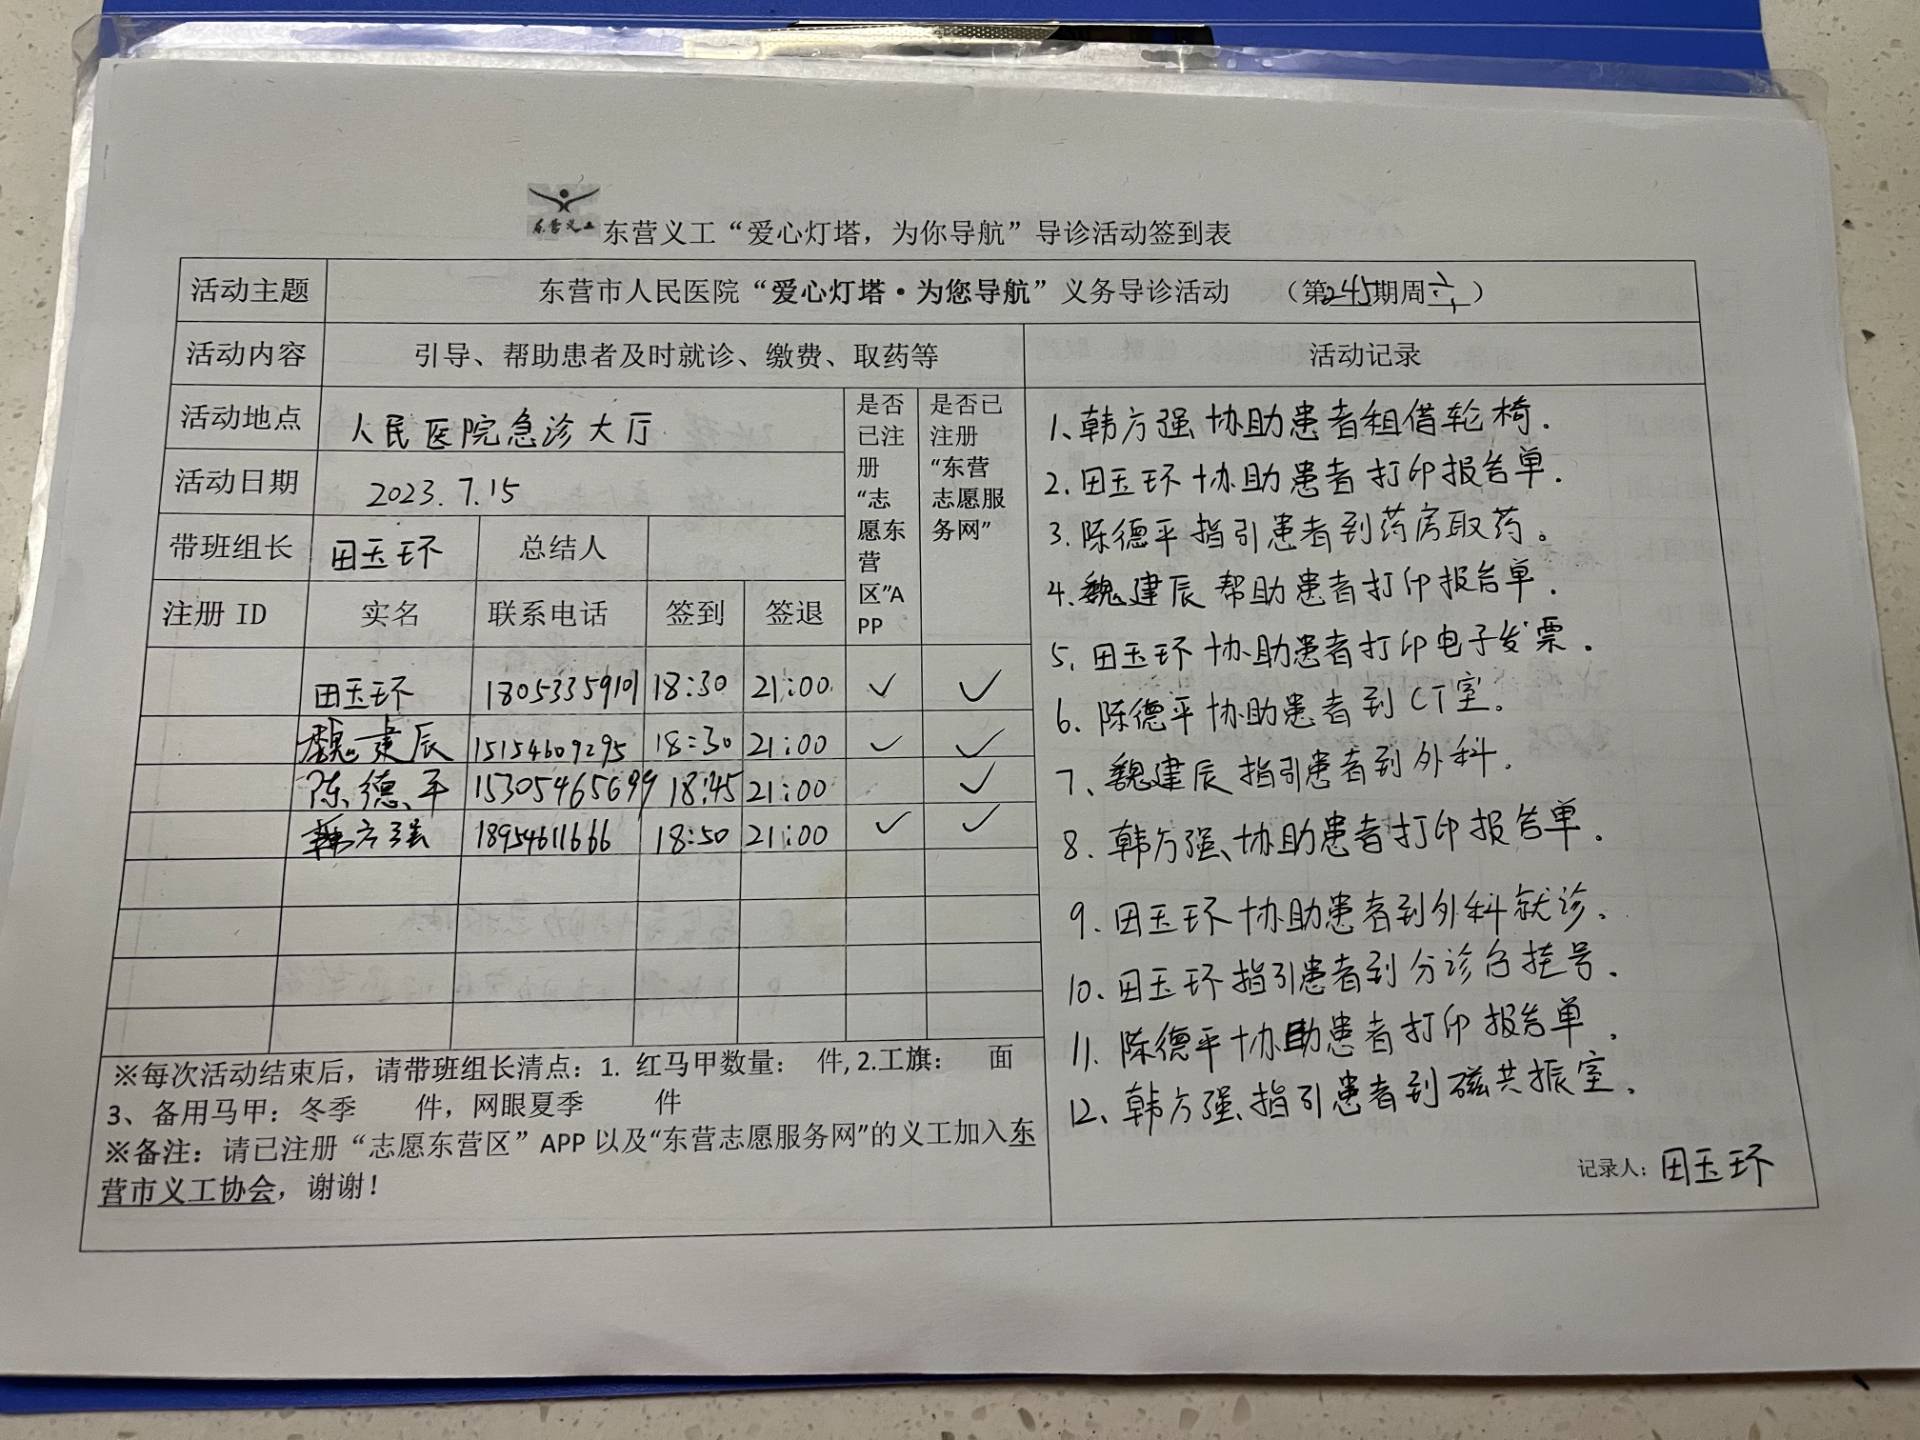 东营义工
东营义工“爱心灯塔，为你导航”导诊活动签到表
活动主题 东营市人民医院“爱心灯塔·为您导航”义务导诊活动 （第245期周六）
活动内容 引导、帮助患者及时就诊、缴费、取药等 活动记录
活动地点 人民医院急诊大厅
活动日期 2023.7.15
带班组长 田玉环 总结人
注册 ID 实名 联系电话 签到 签退
是否
已注
册
“志
愿东
营
区”A
PP
是否已
注册
“东营
志愿服
务网”
田玉环 18053359101 18:30 21:00 ✓ ✓
魏建辰 15154609295 18:30 21:00 ✓ ✓
陈德平 15305465699 18:45 21:00 ✓
韩方强 18954611666 18:50 21:00 ✓ ✓
※每次活动结束后，请带班组长清点：1. 红马甲数量： 件, 2.工旗： 面
3、备用马甲：冬季 件，网眼夏季 件
※备注：请已注册“志愿东营区”APP 以及“东营志愿服务网”的义工加入东
营市义工协会，谢谢！
1、韩方强协助患者租借轮椅.
2.田玉环协助患者打印报告单.
3.陈德平指引患者到药房取药。
4.魏建辰帮助患者打印报告单.
5.田玉环协助患者打印电子发票.
6.陈德平协助患者到CT室。
7、魏建辰指引患者到外科.
8.韩方强、协助患者打印报告单.
9.田玉环协助患者到外科就诊.
10、田玉环指引患者到分诊台挂号.
11、陈德平协助患者打印报告单.
12、韩方强、指引患者到磁共振室.
记录人：田玉环